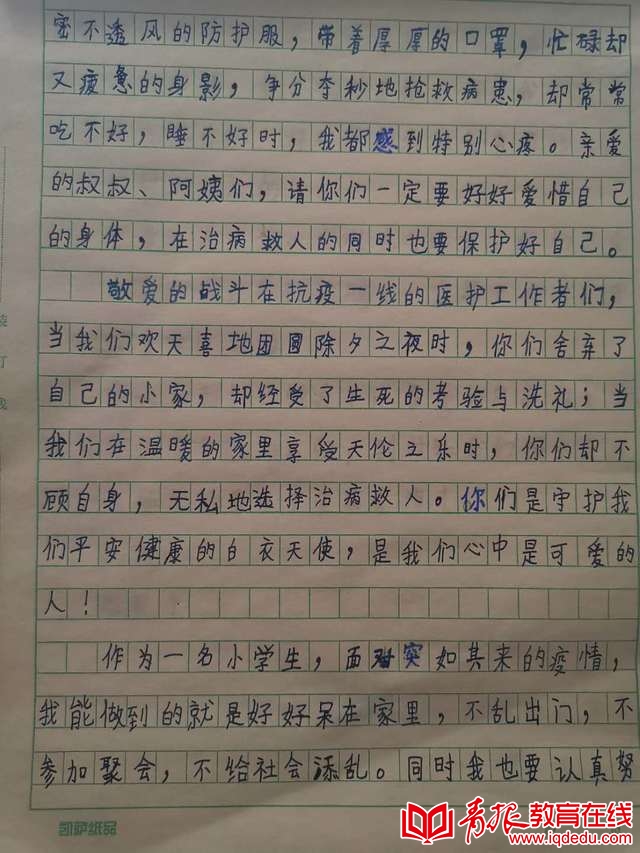 密不透风的防护服，带着厚厚的口罩，忙碌却
又疲惫的身影，争分夺秒地抢救病患，却常常
吃不好，睡不好时，我都感到特别心疼。亲爱
的叔叔、阿姨们，请你们一定要好好爱惜自己
的身体，在治病救人的同时也要保护好自己。
敬爱的战斗在抗疫一线的医护工作者们，
当我们欢天喜地团圆除夕之夜时，你们舍弃了
自己的小家，却经受了生死的考验与洗礼；当
我们在温暖的家里享受天伦之乐时，你们却不
顾自身，无私地选择治病救人。你们是守护我
们平安健康的白衣天使，是我们心中是可爱的
人！
作为一名小学生，面对突如其来的疫情，
我能做到的就是好好呆在家里，不乱出门，不
参加聚会，不给社会添乱。同时我也要认真努
凯萨纸品
青报教育在线
www.iqdedu.com